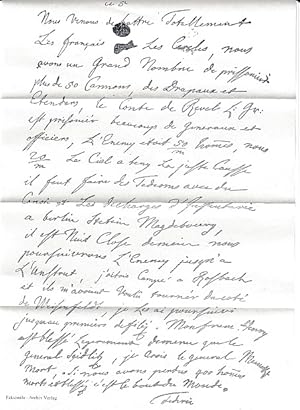 ce 5
Nous Venons de battre Totellement
Les français Les Cercles, nous
avons un Grand Nombre de prissoniers
plus de 50 Cannons, des Drapaux et
Etendars, le Conte de Revel L. Gr:
est prisonier beaucoup de generaux et
officiers, L'Enemy etait 50 homes, nous
20 Le Ciel a beny La juste Cause
m
il faut faire des Tedeoms avec du
Canon et Les Decharges d'Infanterie
a berlin Stetin Magdebourg,
il est Nuit Close demain nous
poursuivrons L'Enemy jusqu'à
L'Unstrut, j'étois Campé a Rosbach
et ils m'avont Voulu tourner du coté
de Weisenfeldt, je Les ai poursuivi
jusqu'au premiers defilé, Monfrere Henry
est blessé Legerement de meme que le
general Seidlitz, je crois le general Meinecke
Mort, Si nous avons perdus 500 homes
morts et blessés c'est le bout du Monde
Federic
Faksimile: Archiv Verlag